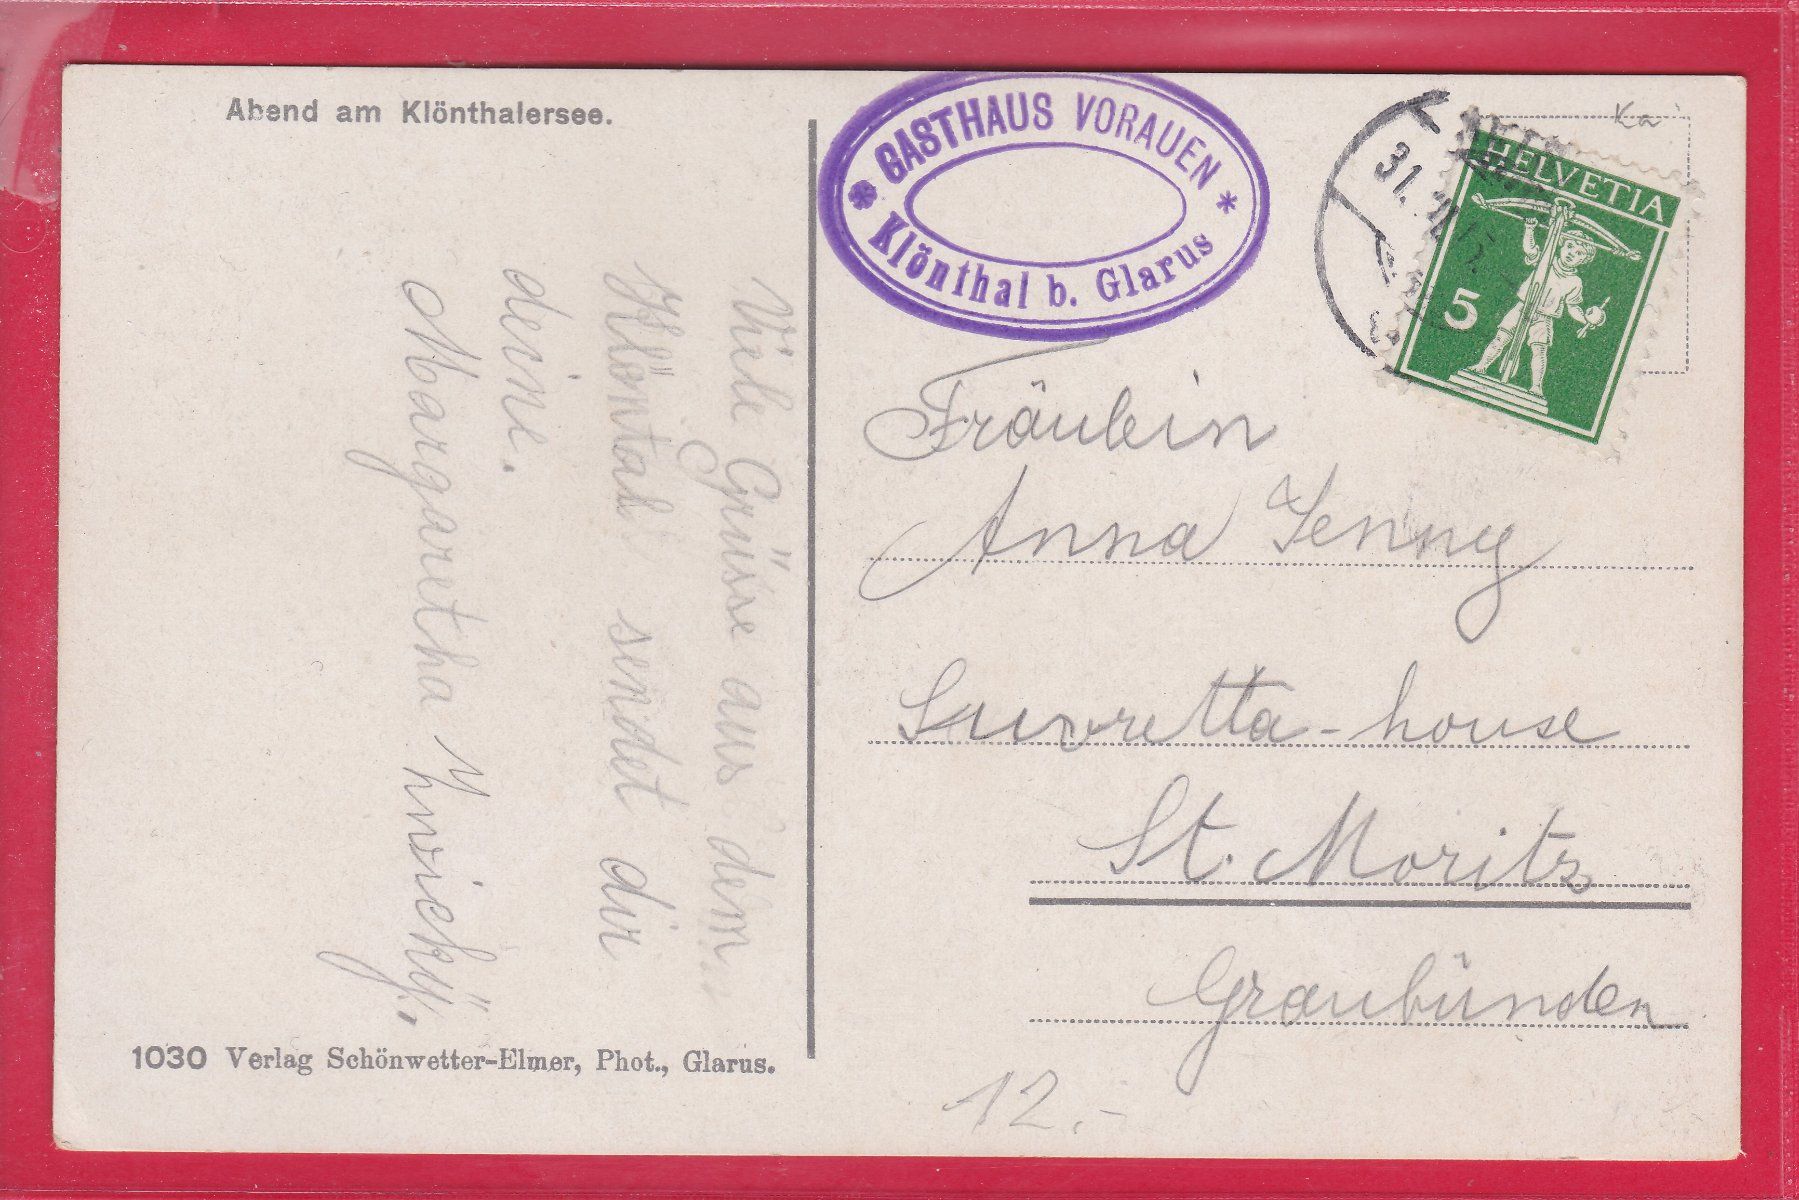 Abend am Klönthalersee.
GASTHAUS VORAUEN
Klönthal b. Glarus
31.
HELVETIA
5
Viele Grüsse aus dem
Klöntal sendet dir
deine.
Margaretha Zwicky,
Fräulein
Anna Jenny
Suvretta-house
St. Moritz
Graubünden
12.-
1030 Verlag Schönwetter-Elmer, Phot., Glarus.